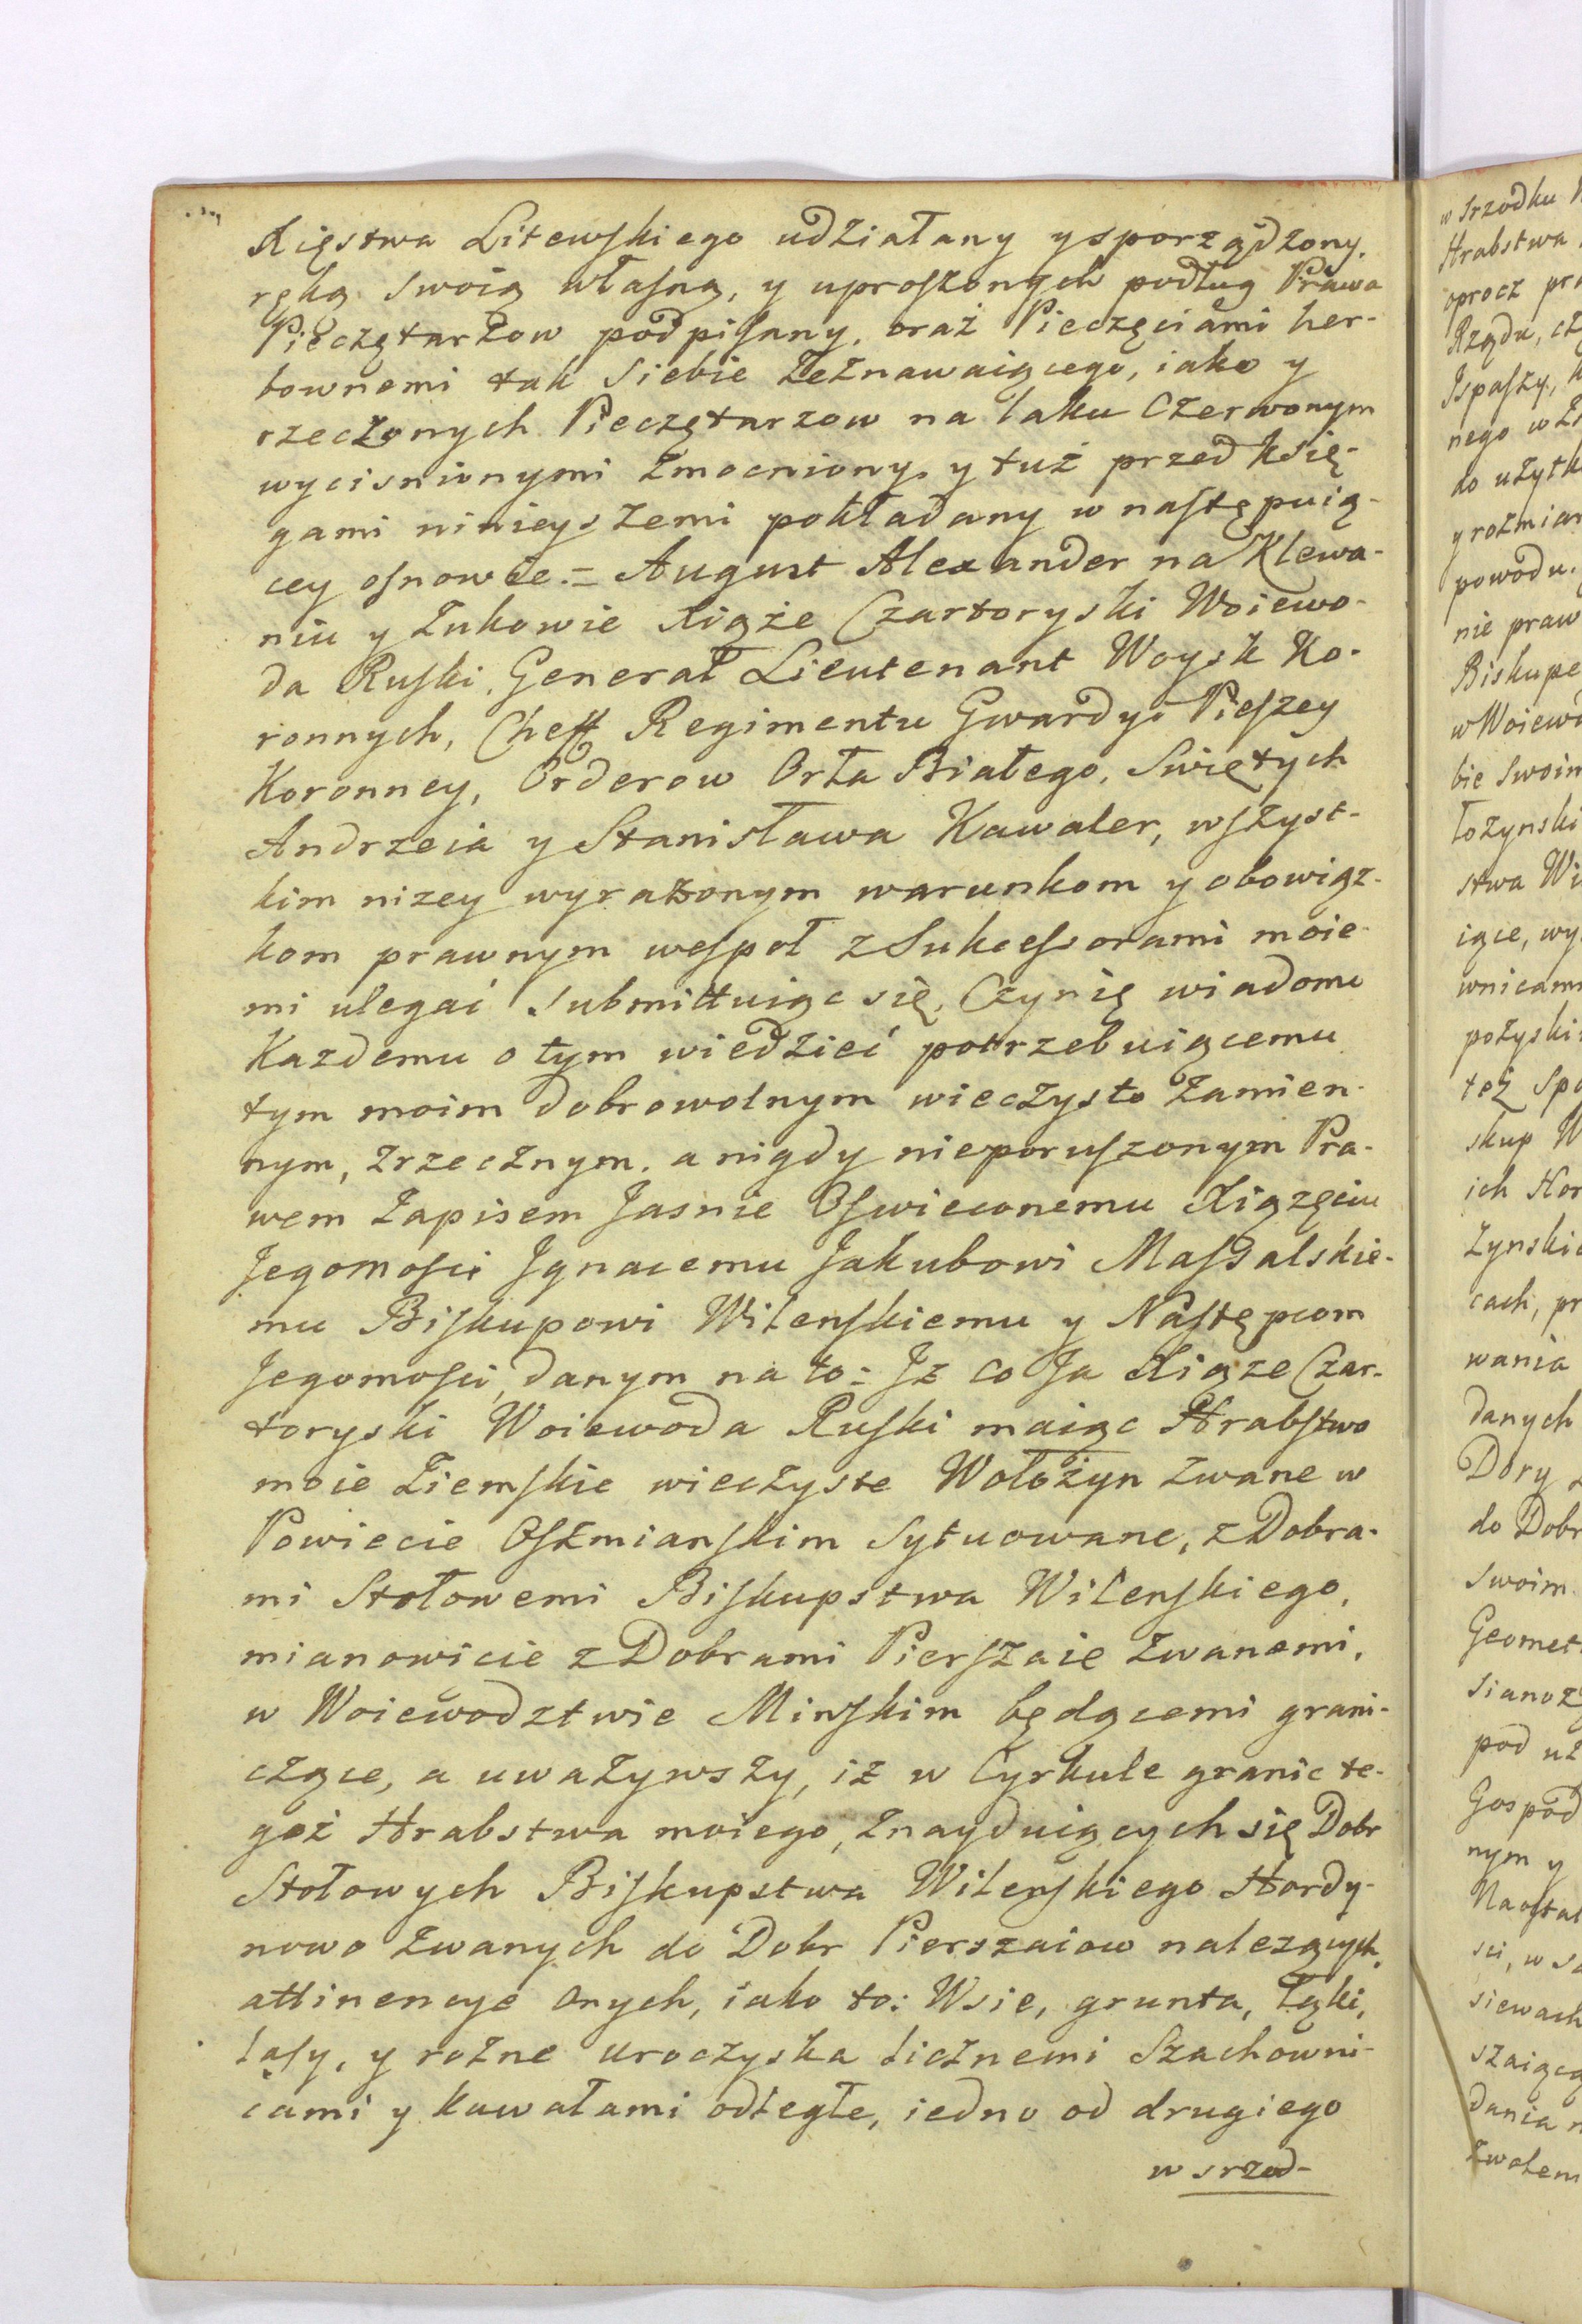 Xięstwa Litewskiego udziałany y sporządzony,
ręką swoią własną, y uproszonych podług Prawa
Pieczętarzow podpisany, oraz Pieczęciami her-
bownemi tak siebie zeznawaiącego, iako y
rzeczonych Pieczętarzow na laku Czerwonym
wycisnionymi zmocniony, y tuż przed księ-
gami ninieyszemi pokładany w następuią-
cey osnowie = August Alexander na Klewa-
niu y Żukowie Xiąże Czartoryski Woiewo-
da Ruski, Generał Lieutenant Woysk Ko-
ronnych, Cheff Regimentu Gwardyi Pieszey
Koronney, Orderow Orła Białego, Swiętych
Andrzeia y Stanisława Kawaler, wszyst-
kim nizey wyrażonym warunkom y obowiąz-
kom prawnym wespoł z Sukcessorami moie-
mi ulegać submittuiąc się, Czynię wiadomo
Kazdemu o tym wiedzieć potrzebuiącemu
tym moim dobrowolnym wieczysto zamien-
nym, zrzecznym, a nigdy nieporuszonym Pra-
wem Zapisem Jasnie Oswieconemu Xiązęciu
Jegomosci Jgnacemu Jakubowi Massalskie-
mu Biskupowi Wilenskiemu y Następcom
Jegomosci, danym na to: Jz co Ja Xiąze Czar-
toryski Woiewoda Ruski maiąc Hrabstwo
moie Ziemskie wieczyste Wołożyn zwane w
Powiecie Oszmianskim Sytuowane, z Dobra-
mi Stołowemi Biskupstwa Wilenskiego,
mianowicie z Dobrami Pierszaie zwanemi,
w Woiewodztwie Minskim będącemi grani-
czące, a uważywszy, iż w Cyrkule granic te-
goż Hrabstwa moiego, znayduiących się Dobr
Stołowych Biskupstwa Wilenskiego Hordy-
nowo zwanych do Dobr Pierszaiow nalezących,
attinencye onych, iako to: Wsie, grunta, Łąki,
lasy, y rożne uroczyska licznemi Szachowni-
cami y kawałami odległe, iedno od drugiego
w srzod-